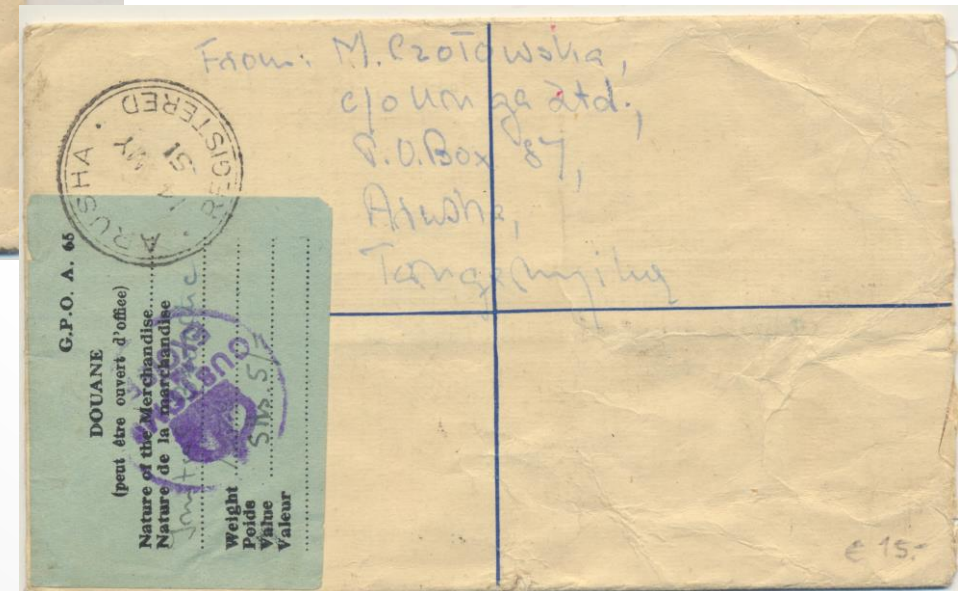 From: M. Czołowska,
c/o Unnga Ltd.,
P.O.Box 87,
Arusha,
Tanganyika
ARUSHA
REGISTERED
MY
51
G.P.O. A. 65
DOUANE
(peut être ouvert d'office)
Nature of the Merchandise
Nature de la marchandise
Weight
Poids
Value Shs. 5/=
Valeur
CUSTOMS
€ 15.-